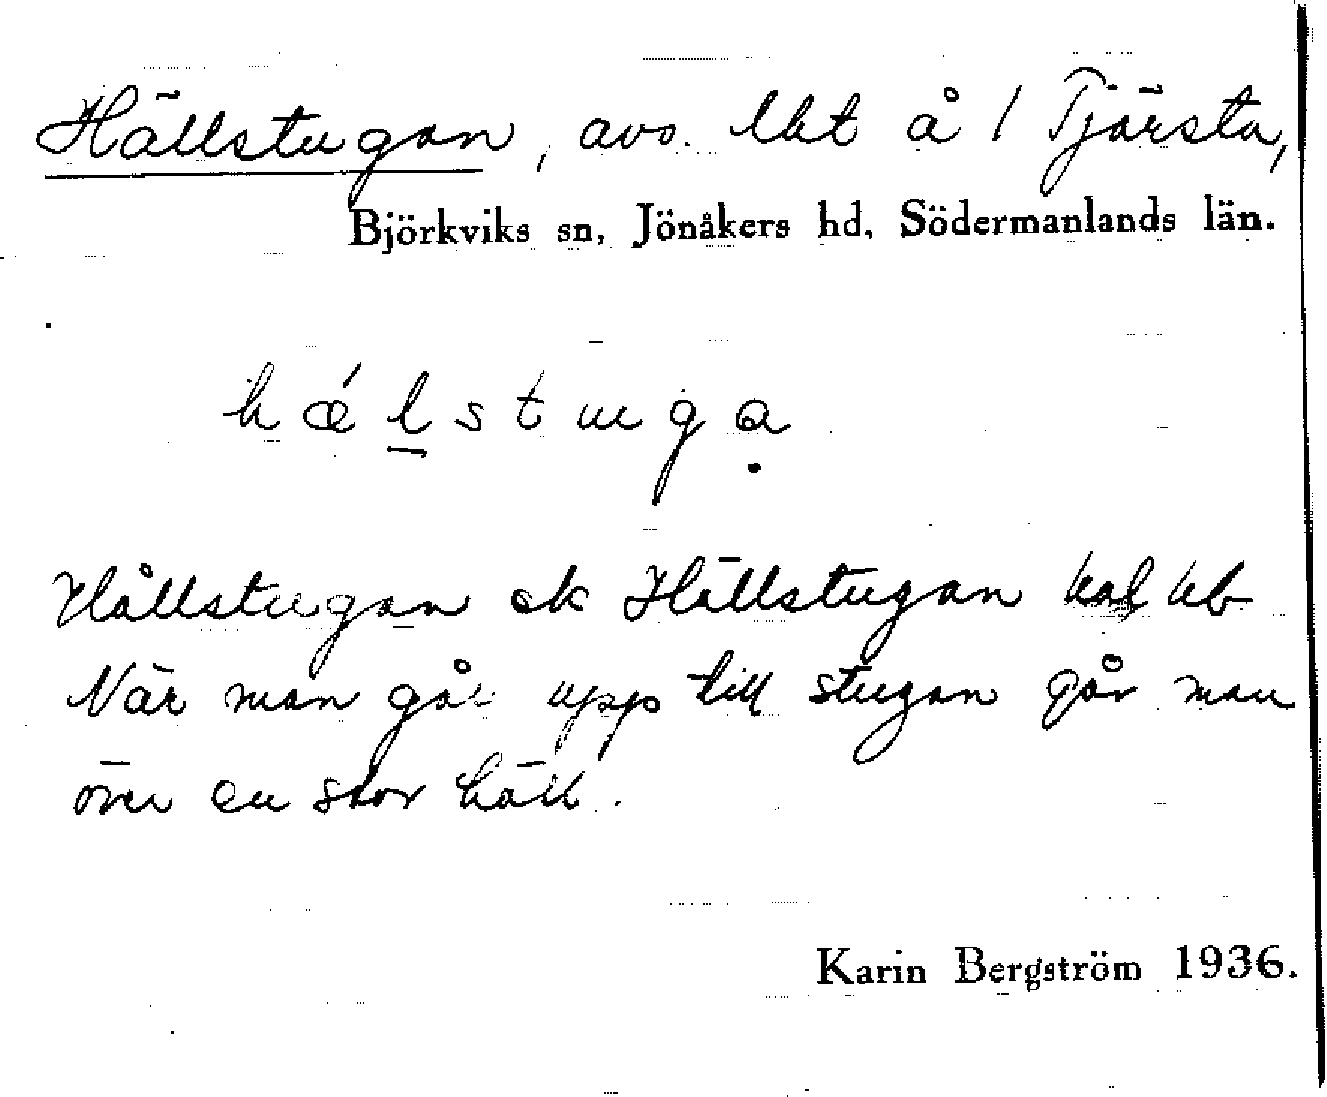 Hällstugan, avs. lht å 1 Tjärsta,
Björkviks sn, Jönåkers hd, Södermanlands län.
hǽlstuga̤
Hållstugan ek Hällstugan
När man går upp till stugan går man
över en stor häll.
Karin Bergström 1936.